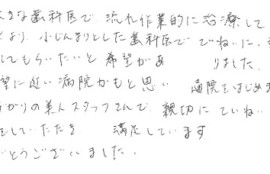 きな歯科医で 流れ作業的に治療して
より 小じんまりとした歯科医で ていねに、
してもらいたいと希望があ りました。
望に近い病院かもと思い 通院をはじめま
かりの美人スタッフさんで、親切にていね
をしていただき 満足しています
とうございました。